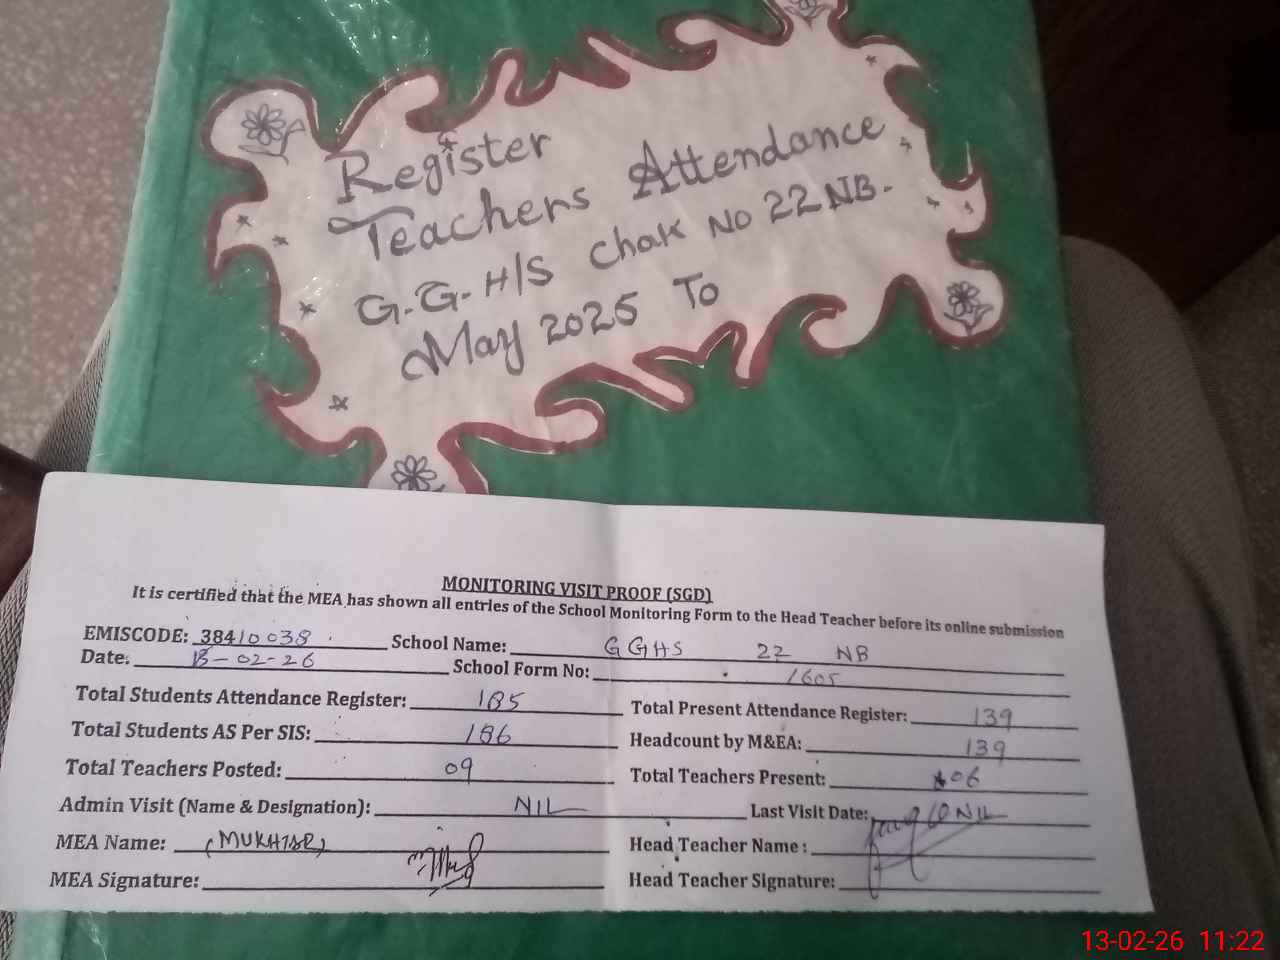 Register
Teachers Attendance
G.G.H/S Chak No 22 NB.
May 2025 To
MONITORING VISIT PROOF (SGD)
It is certified that the MEA has shown all entries of the School Monitoring Form to the Head Teacher before its online submission
EMISCODE: 38410038 School Name: GGHS 22 NB
Date: 13-02-26 School Form No: 1605
Total Students Attendance Register: 185 Total Present Attendance Register: 139
Total Students AS Per SIS: 186 Headcount by M&EA: 139
Total Teachers Posted: 09 Total Teachers Present: 06
Admin Visit (Name & Designation): NIL Last Visit Date: NIL
MEA Name: (MUKHTAR) Head Teacher Name:
MEA Signature: Head Teacher Signature:
13-02-26 11:22